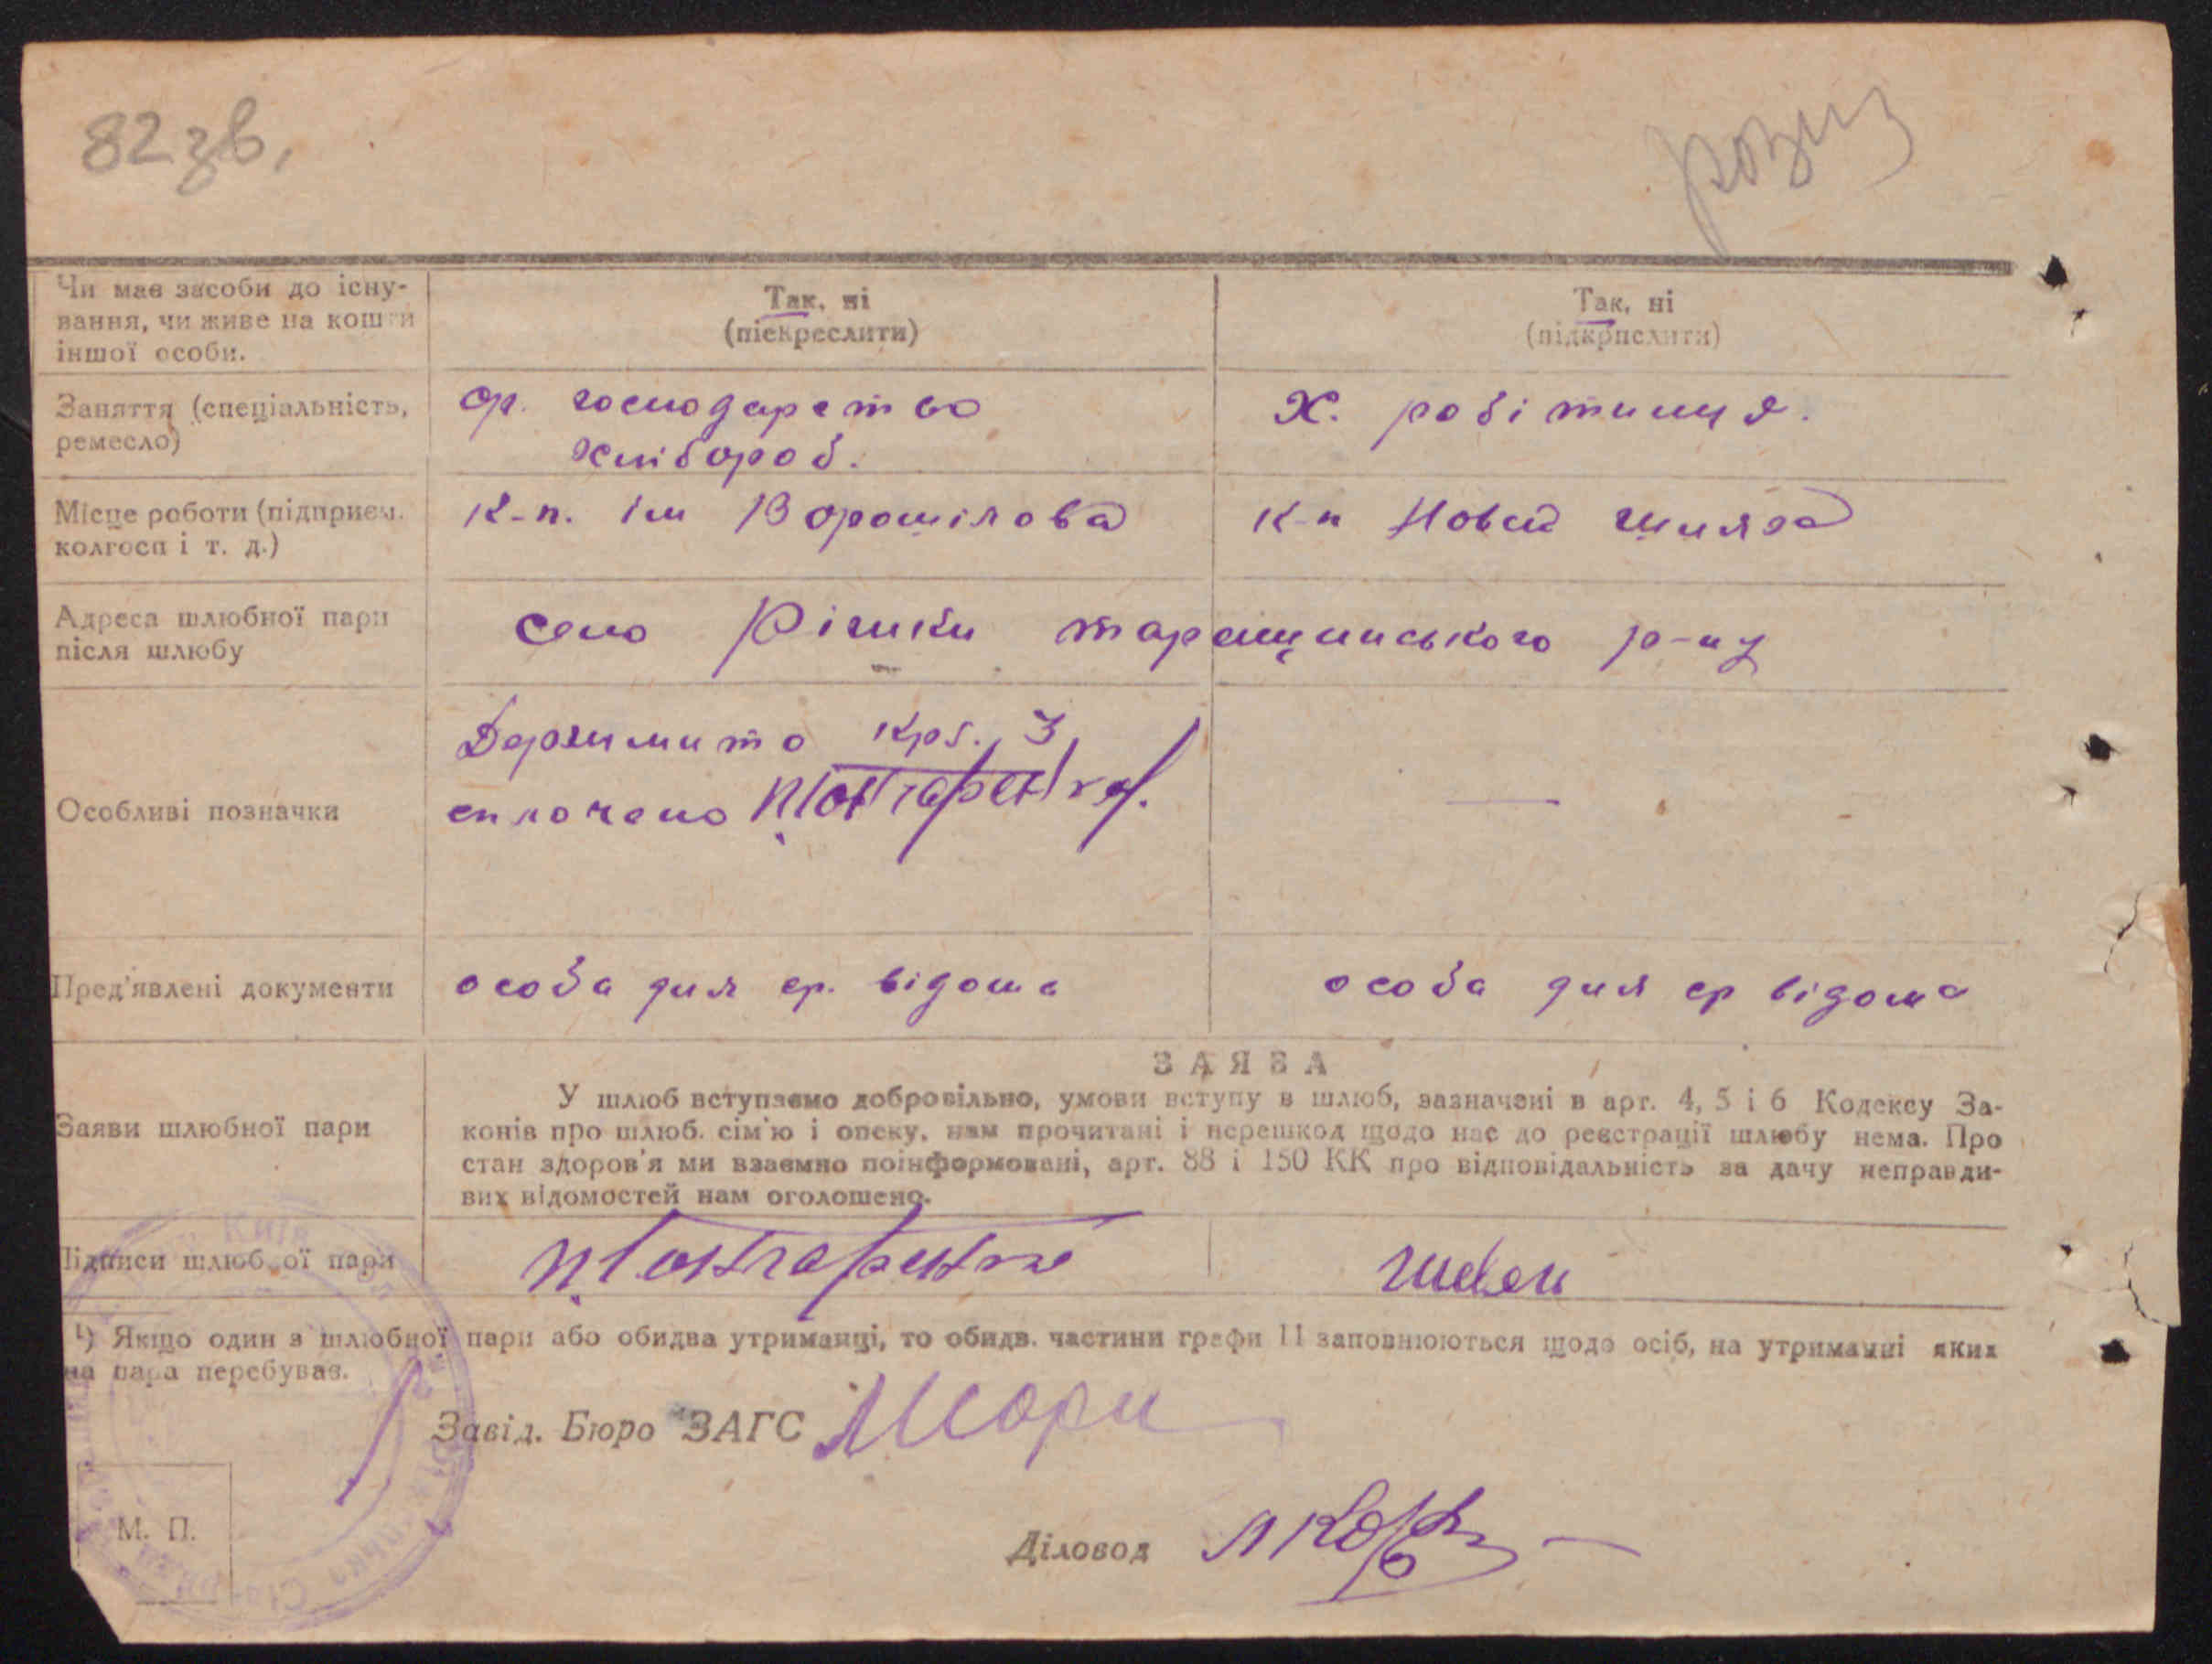 82 зв.
Чи має засоби до існу-
вання, чи живе на кошти
іншої особи.
Так, ні
(піскреслити)
Так, ні
(підкрпслити)
Заняття (спеціальність,
ремесло)
ср. господарство
хлібороб.
Х. робітниця.
Місце роботи (підприєм.
колгосп і т. д.)
к-п. ім Ворошілова
к-п Новий шлях
Адреса шлюбної пари
після шлюбу
село Рішки таращинського р-ну
Особливі позначки
Держмито крб. 3
сплочено
—
Пред'явлені документи
особа для ср. відома
особа для ср відома
Заяви шлюбної пари
ЗАЯВА
У шлюб вступаємо добровільно, умови вступу в шлюб, зазначені в арт. 4, 5 і 6 Кодексу За-
конів про шлюб. сім'ю і опеку, нам прочитані і перешкод щодо нас до реєстрації шлюбу нема. Про
стан здоров'я ми взаємно поінформовані, арт. 88 і 150 КК про відповідальність за дачу неправди-
вих відомостей нам оголошено.
Підписи шлюб ої пари
¹) Якщо один з шлюбної пари або обидва утриманці, то обидв. частини графи 11 заповнюються щодо осіб, на утриманні яких
на пара перебуває.
Завід. Бюро ЗАГС
Діловод
М. П.